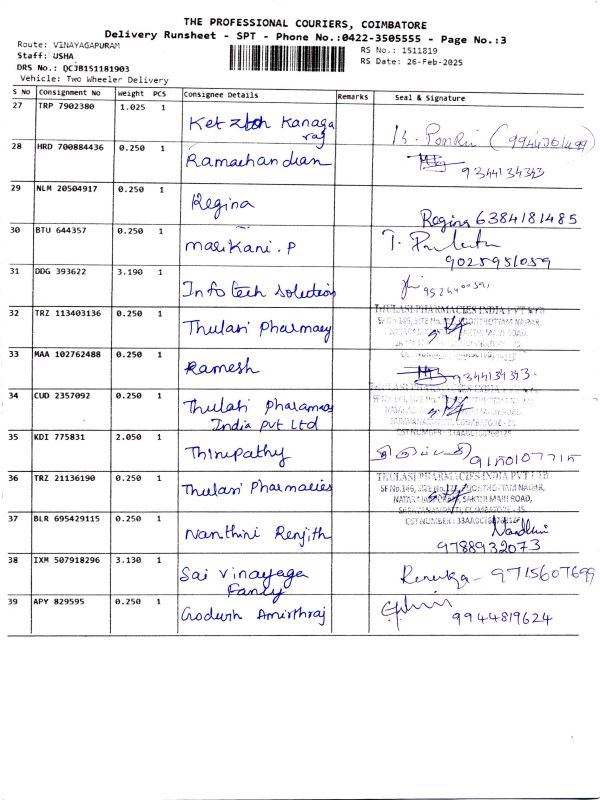 THE PROFESSIONAL COURIERS, COIMBATORE
Delivery Runsheet - SPT - Phone No.:0422-3505555 - Page No.:3
Route: VINAYAGAPURAM RS No.: 1511819
Staff: USHA RS Date: 26-Feb-2025
DRS No.: QCJB151181903
Vehicle: Two Wheeler Delivery
S No Consignment No Weight PCS Consignee Details Remarks Seal & Signature
27 TRP 7902380 1.025 1 Kanaga
raj
28 HRD 700884436 0.250 1 Ramachandran 9344134343
29 NLM 20504917 0.250 1 Regina Regina 6384181485
30 BTU 644357 0.250 1 Marikani.P T.
9025951059
31 DDG 393622 3.190 1 Infotech Solutions
32 TRZ 113403136 0.250 1 Thulasi Pharmacy THULASI PHARMACIES INDIA PVT LTD
33 MAA 102762488 0.250 1 Ramesh 9344134343
34 CUD 2357092 0.250 1 Thulasi pharamacy
India Pvt Ltd
35 KDI 775831 2.050 1 Thirupathy 9150107715
36 TRZ 21136190 0.250 1 Thulasi Pharmacies THULASI PHARMACIES INDIA PVT LTD
SF No.146, SITE No. NAGAR,
SAKTHI MAIN ROAD,
SARAVANAMPATTI, COIMBATORE - 35.
GST NUMBER :
37 BLR 695429115 0.250 1 Nanthini Renjith Nandhini
9788932073
38 IXM 507918296 3.130 1 Sai Vinayaga Renuka - 9715607699
Fancy
39 APY 829595 0.250 1 Godwin Amirthraj 9944819624